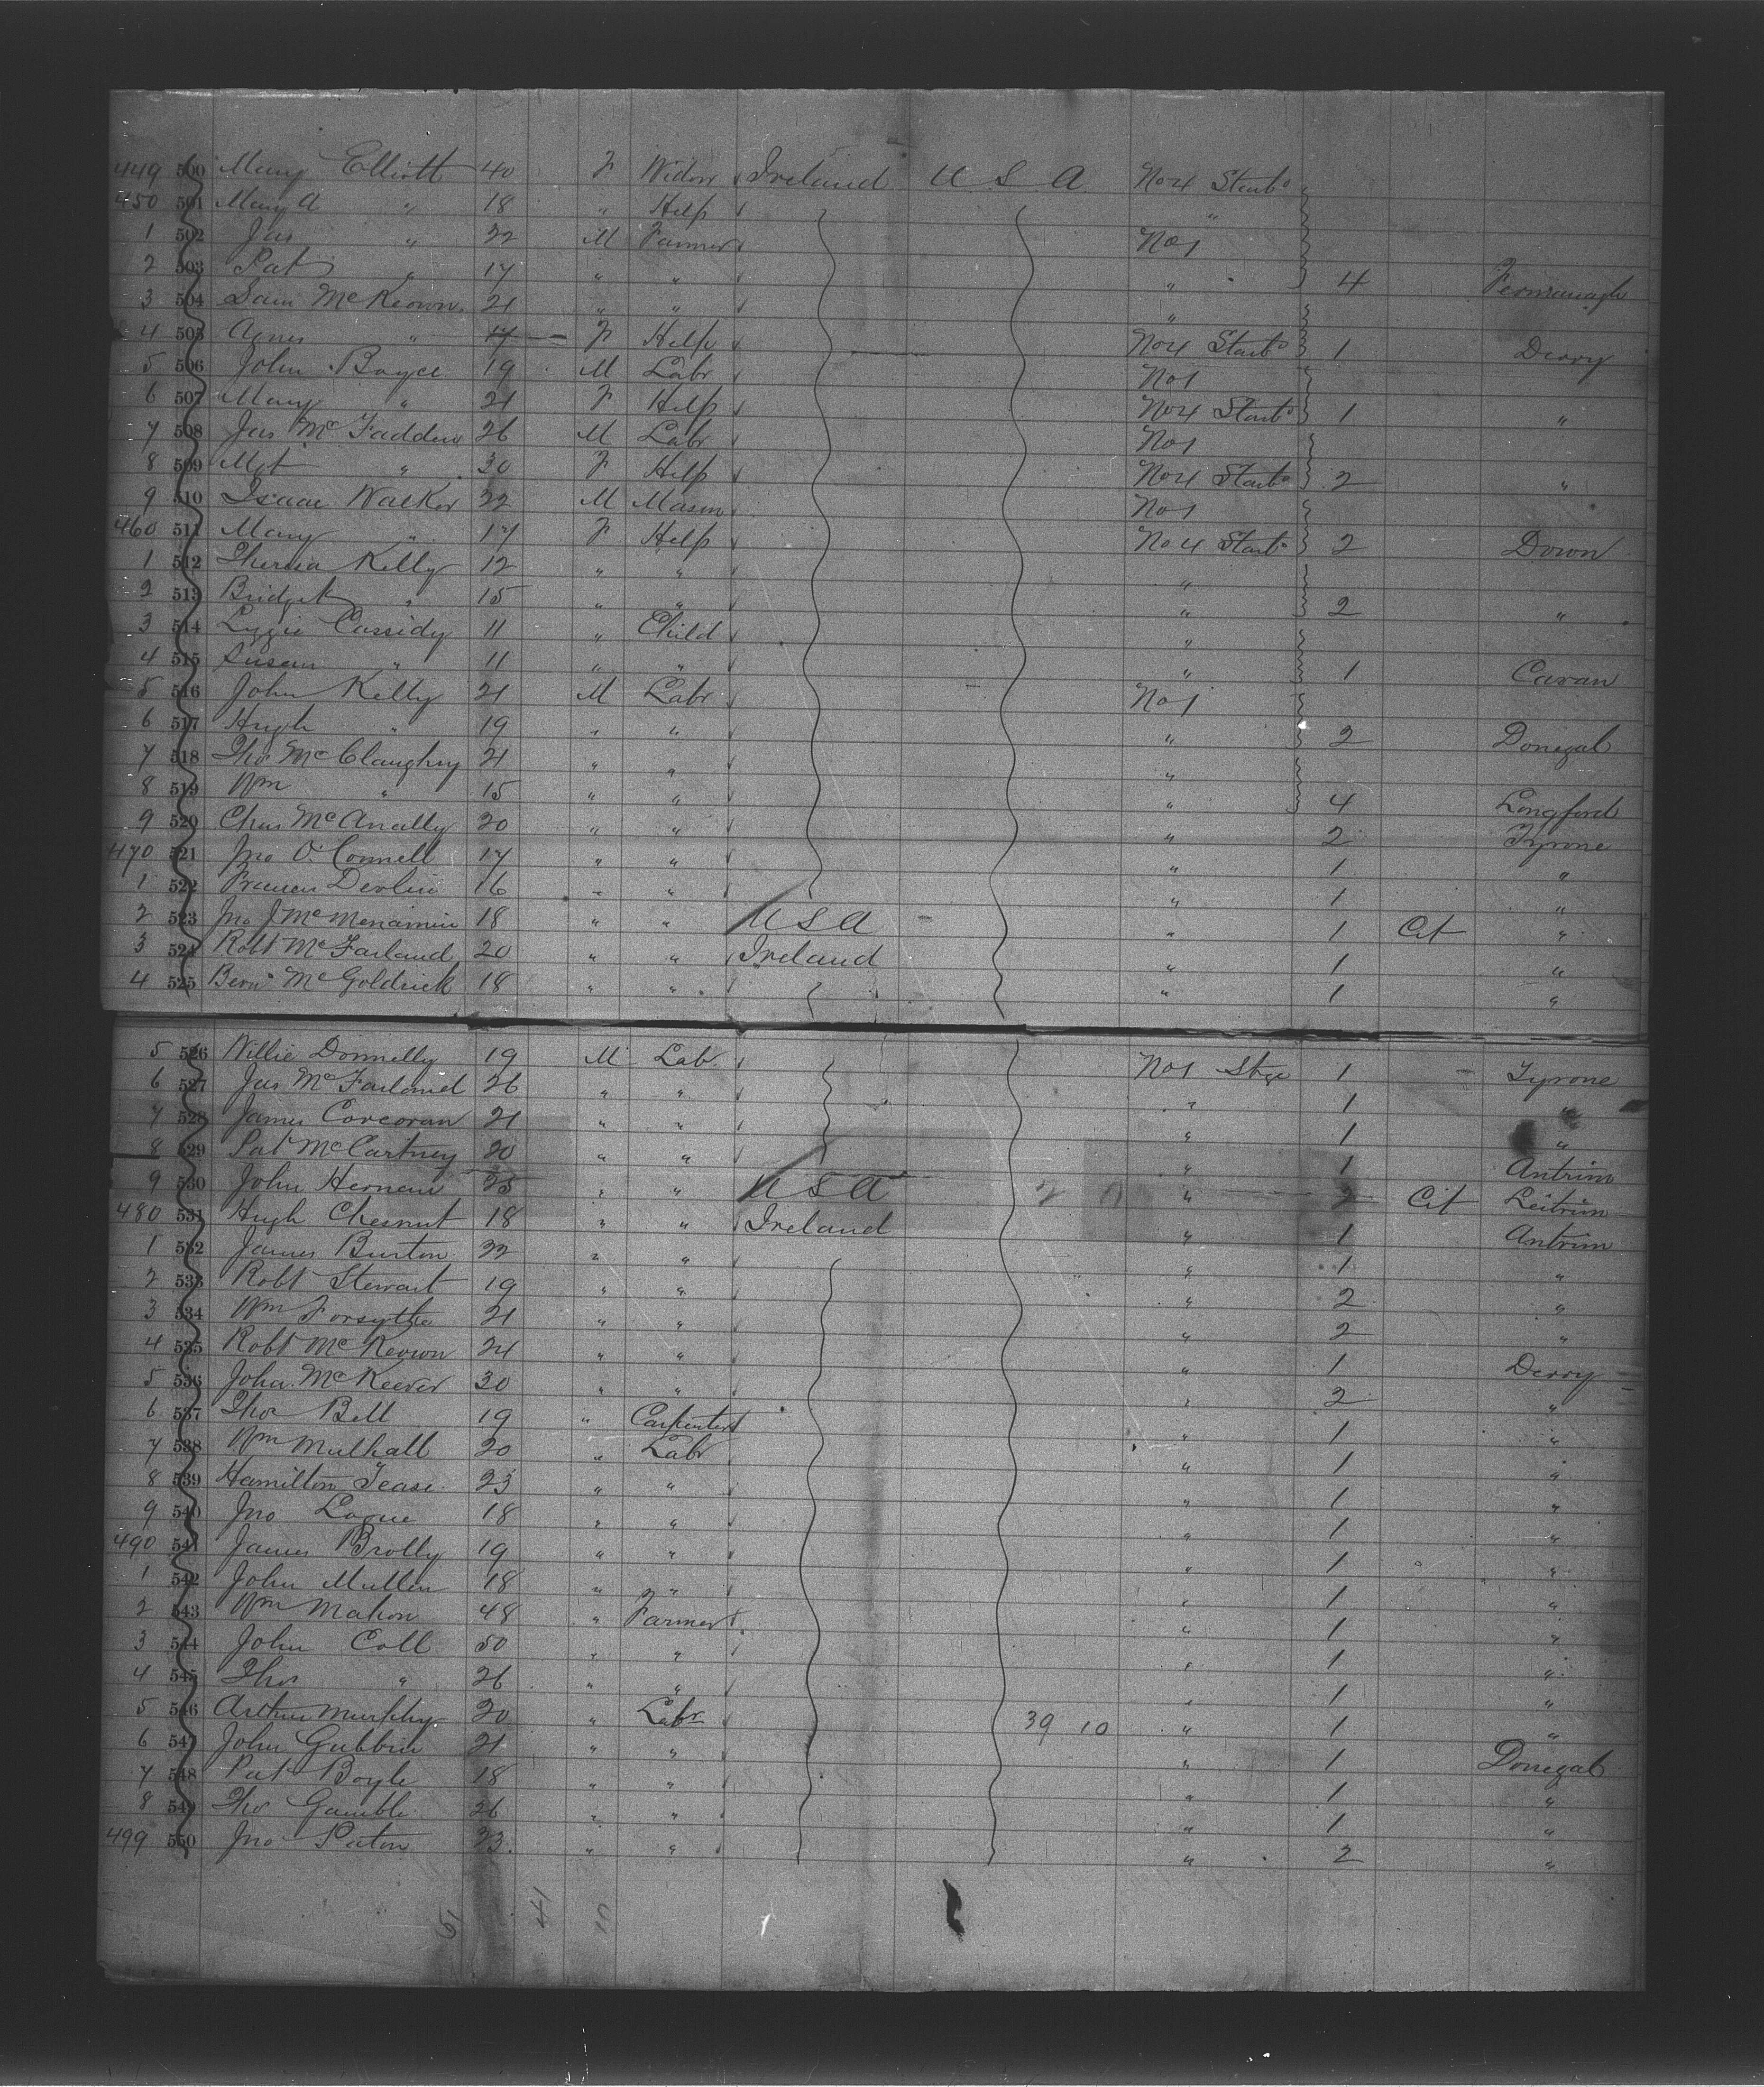 449 500 Mary Elliott 40 F Widow Ireland U S A No 4 Starbd
450 501 Mary A " 18 " Help "
1 502 Jas " 22 M Farmer No 1
2 503 Pat " 17 " " " 4 Fermanagh
3 504 Sam McKeown 21 " " "
4 505 Agnes " 17 F Help No 4 Starbd 1 Derry
5 506 John Boyce 19 M Labr No 1
6 507 Mary " 21 F Help No 4 Starbd 1 "
7 508 Jas McFadden 26 M Labr No 1
8 509 Mgt " 30 F Help No 4 Starbd 2 "
9 510 Isaac Walker 22 M Mason No 1
460 511 Mary " 17 F Help No 4 Starbd 2 Down
1 512 Theresa Kelly 12 " " "
2 513 Bridget " 15 " " " 2 "
3 514 Lizzie Cassidy 11 " Child "
4 515 Susan " 11 " " " 1 Cavan
5 516 John Kelly 21 M Labr No 1
6 517 Hugh " 19 " " " 2 Donegal
7 518 Thos McClaughry 21 " " "
8 519 Wm " 15 " " " 4 Longford
9 520 Chas McAnally 20 " " " 2 Tyrone
470 521 Jno O'Connell 17 " " " 1 "
1 522 Francis Devlin 16 " " " 1 "
2 523 Jno J McMenamin 18 " " U S A " 1 Cit "
3 524 Robt McFarland 20 " " Ireland " 1 "
4 525 Bernd McGoldrick 18 " " " 1 "
5 526 Willie Donnelly 19 M Lab. No 1 Stge 1 Tyrone
6 527 Jas McFarland 26 " " " 1 "
7 528 James Corcoran 21 " " " 1 "
8 529 Pat McCartney 20 " " " 1 Antrim
9 530 John Hernan 25 " " U S A " 2 Cit Leitrim
480 531 Hugh Chesnut 18 " " Ireland " 1 Antrim
1 532 James Burton 22 " " " 1 "
2 533 Robt Stewart 19 " " " 2 "
3 534 Wm Forsythe 21 " " " 2 "
4 535 Robt McKeown 24 " " " 1 Derry
5 536 John McKeever 30 " " " 2 "
6 537 Thos Bell 19 " Carpenter " 1 "
7 538 Wm Mulhall 20 " Labr " 1 "
8 539 Hamilton 23 " " " 1 "
9 540 Jno Logue 18 " " " 1 "
490 541 James Brolly 19 " " " 1 "
1 542 John Mullen 18 " " " 1 "
2 543 Wm Mahon 48 " Farmer " 1 "
3 544 John Coll 50 " " " 1 "
4 545 Thos " 26 " " " 1 "
5 546 Arthur Murphy 20 " Labr 39 10 " 1 "
6 547 John Gubbin 21 " " " 1 Donegal
7 548 Pat Boyle 18 " " " 1 "
8 549 Thos Gamble 26 " " " 1 "
499 550 Jno Paton 23 " " " 2 "
51 41 10